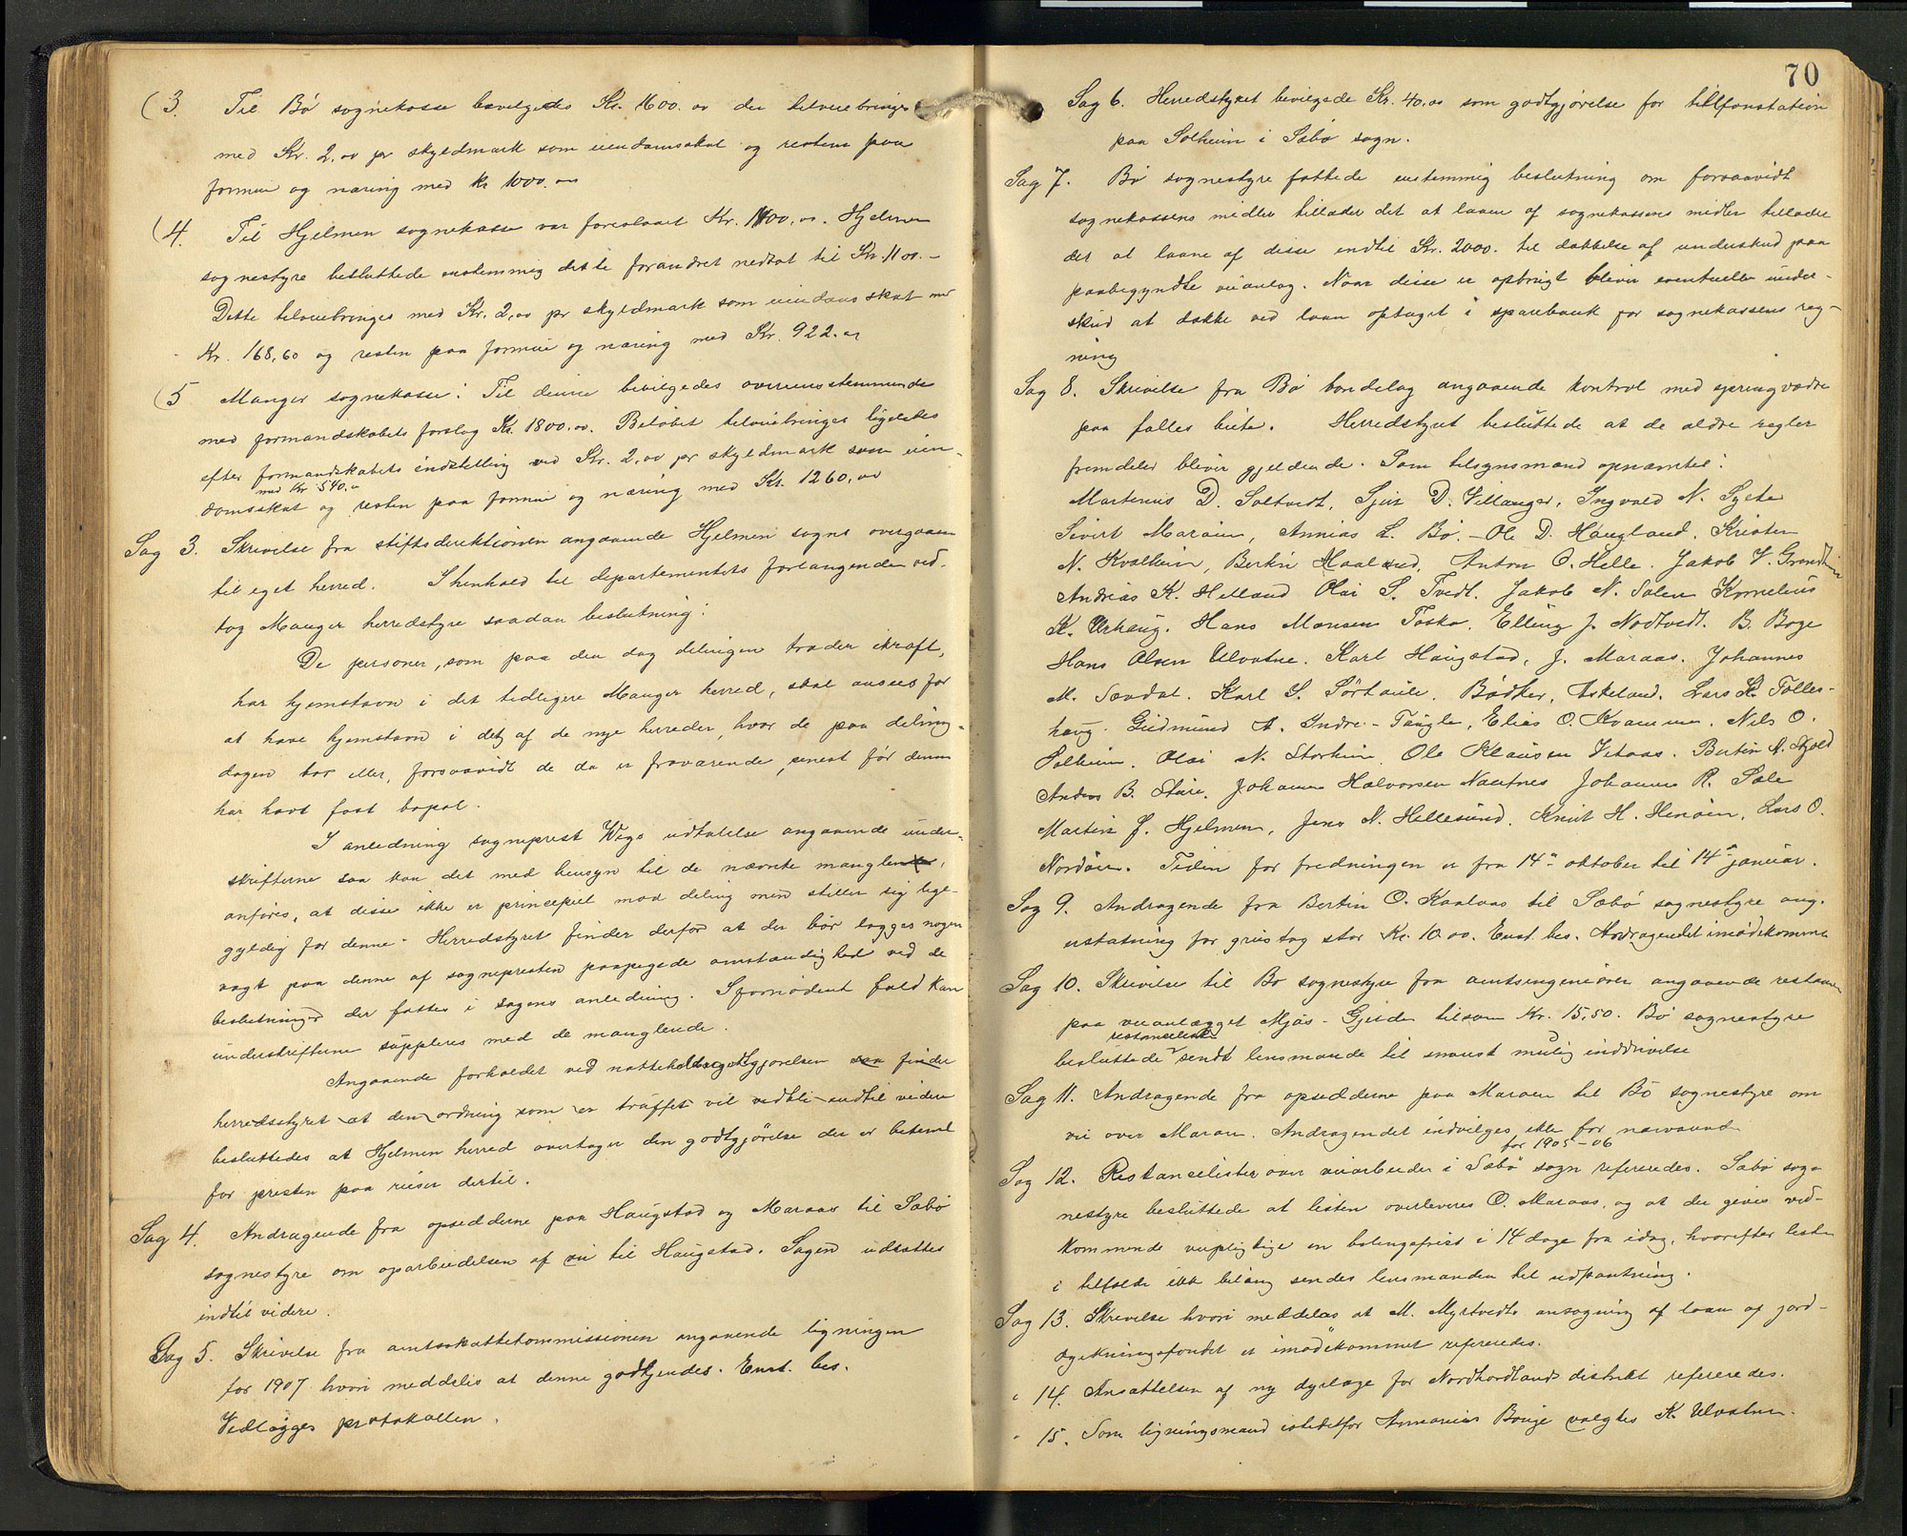 (3. Til Bø sognekasse bevilgedes Kr. 1600.00 der tilveiebringes
med Kr. 2,00 pr skyldmark som eiendomsskat og resten paa
formue og næring med kr 1000.00
(4. Til Hjelmen sognekasse var foreslaaet Kr. 1400.00. Hjelmen
sognestyre besluttede enstemmig dette forandret nedsat til Kr. 1100.-
Dette tilveiebringes med Kr. 2,00 pr skyldmark som eiendoms skat med
Kr. 168,60 og resten paa formue og næring med Kr. 922.00
(5 Manger sognekasse: Til denne bevilgedes overensstemmende
med formandskabets forslag Kr. 1800.00. Beløbet tilveiebringes ligeledes
efter formandskabets indstilling ved Kr. 2,00 pr skyldmark som eien-
med Kr 540.00
domsskat og resten paa formue og næring med Kr. 1260,00
Sag 3. Skrivelse fra stiftsdirektionen angaaende Hjelmen sogns overgaaen
til eget herred. I henhold til departementets forlangende ved-
tog Manger herredstyre saadan beslutning:
De personer, som paa den dag delingen træder ikraft,
har hjemstavn i det tidligere Manger herred, skal ansees for
at have hjemstavn i det af de nye herreder, hvor de paa deling-
dagen bor eller, forsaavidt de da er fraværende, senest før denne
har havt fast bopæl.
I anledning sogneprest Wigs udtalelse angaaende under-
skrifterne saa kan det med hensyn til de nævnte manglende,
anføres, at disse ikke er principiel mod deling men stiller sig lige-
gyldig for denne. Herredstyret finder derfor at der bør lægges nogen
vægt paa denne af sognepresten paapegede omstændighed ved de
beslutninger der fattes i sagens anledning. I fornødent fald kan
underskrifterne suppleres med de manglende.
Angaaende forholdet ved natteholdsgodtgjørelsen saa finder
herredsstyret at den ordning som er truffet vil vedbli indtil videre
besluttedes at Hjelmen herred overtager den godtgjørelse der er bestemt
for presten paa reiser dertil.
Sag 4. Andragende fra opsedderne paa Haugstad og Maraas til Sæbø
sognestyre om oparbeidelsen af vei til Haugstad. Sagen udsættes
indtil videre.
Sag 5. Skrivelse fra amtsskattekommissionen angaaende ligningen
for 1907 hvori meddeles at denne godkjendes. Enst. bes.
Vedlægges protokollen.
70
Sag 6. Herredstyret bevilgede Kr. 40,00 som godtgjørelse for tillfonstation
paa Solheim i Sæbø sogn.
Sag 7. Bø sognestyre fattede enstemmig beslutning om forsaavidt
sognekassens midler tillader det at laane af sognekassens midler tillader
det at laane af disse indtil Kr. 2000. til dækkelse af underskud paa
paabegyndte veianlæg. Naar disse er opbrugt bliver eventuelle under-
skud at dække ved laan optaget i sparebank for sognekassens reg-
ning
Sag 8. Skrivelse fra Bø bondelag angaaende kontrol med springvædre
paa fælles beite. Herredstyret besluttede at de ældre regler
fremdeles bliver gjeldende. Som tilsynsmænd opnævntes:
Martinus D. Soltvedt, Sjur D. Villanger, Ingvald N. Sylte
Sivert Maraas, Annias L. Bø. - Ole D. Haugland. Kristen
N. Kvalheim, Bertin Haaland, Anton O. Helle. Jakob V. Grendheim
Andreas K. Helland Olai S. Tvedt. Jakob N. Solem Kornelius
K. Urhaug. Hans Monsen Toska. Elling J. Nodtvedt. B. Boge
Hans Olsen Ulvatne. Karl Haugstad, J. Maraas. Johannes
M. Sævdal. Karl S. Sørtaule. Bødker, Askeland. Lars K. Tolles-
haug. Gudmund A. Indre-Taugle, Elias O. Kvamme. Nils O.
Solheim. Olai N. Storheim. Ole Klausen Vetaas. Bertin N.
Anders B. Sture. Johannes Halvorsen Nautnes Johannes R. Sæle
Martin J. Hjelmen, Jens N. Hellesund. Knut H. Henøen, Lars O.
Nordøen. Tiden for fredningen er fra 14de oktober til 14de januar.
Sag 9. Andragende fra Bertin O. Kaalaas til Sæbø sognestyre ang.
erstatning for grustag stor Kr. 10.00. Enst. bes. Andragendet imødekomme
Sag 10. Skrivelse til Bø sognestyre fra amtsingeniøren angaaende restance
paa veianlægget Mjøs - Gjeide tilsam Kr. 15,50. Bø sognestyre
restanseliste
besluttede sendt lensmande til snarest mulig inddrivelse
Sag 11. Andragende fra opsedderne paa Maraas til Bø sognestyre om
vei over Maraas. Andragendet indvilges ikke for nærværende
for 1905-06
Sag 12. Restancelister over veiarbeider i Sæbø sogn refereredes. Sæbø sog-
nestyre besluttede at listen overleveres O. Maraas, og at der gives ved-
kommende veipligtige en betalingsfrist i 14 dage fra idag, hvorefter liste
i tilfælde ikke betaling sendes lensmanden til udpantning.
Sag 13. Skrivelse hvori meddeles at M. Myrtvedts ansøgning af laan af jord-
dyrkningsfondet er imødekommet refereredes.
" 14. Ansættelsen af ny dyrlæge for Nordhordland distrikt refereredes.
" 15. Som ligningsmand istedetfor Annanias Bouge valgtes K. Ulvatne.